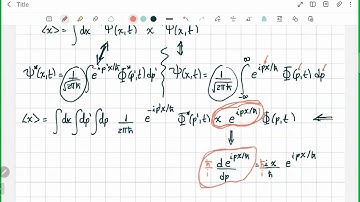 Title
⟨x⟩ = ∫dx Ψ*(x,t) x Ψ(x,t)
Ψ*(x,t) = 1/√2πħ ∫ e^{-ip'x/ħ} Φ*(p',t) dp' Ψ(x,t) = 1/√2πħ ∫_{-∞}^{∞} e^{ipx/ħ} Φ(p,t) dp
⟨x⟩ = ∫dx ∫dp ∫dp 1/2πħ e^{-ip'x/ħ} Φ*(p',t) x e^{ipx/ħ} Φ(p,t) ⇐
ħ/i d e^{ipx/ħ}/dp = ħ/i ix/ħ e^{ipx/ħ}